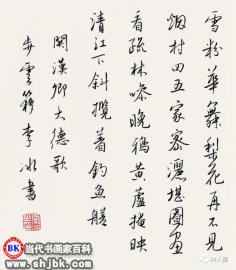 雪粉華舞梨花再不見
烟村四五家密灑堪圖畫
看疏林噪晚鴉黄蘆掩映
清江下斜攬着釣魚艖
關漢卿大德歌
步雲 李冰書
BK 当代书画家百科
www.ehjbk.com